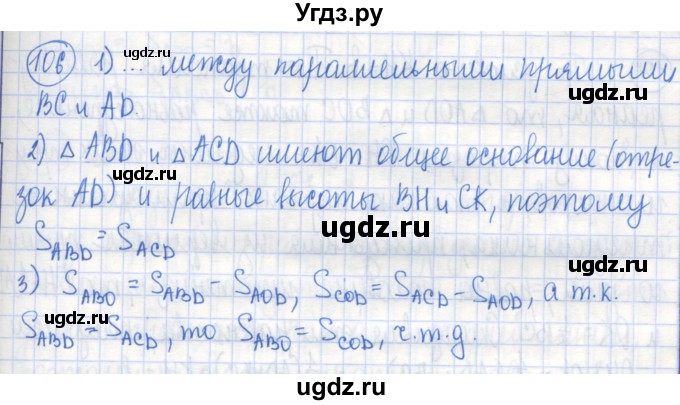 Угдз.ру
106 1) ... между параллельными прямыми
ugdz.ru
BC и AD.
ugdz.ru
2) △ ABD и △ ACD имеют общее основание (отре-
зок AD) и равные высоты BH и CK, поэтому
ugdz.ru
S_ABD = S_ACD
3) S_ABO = S_ABD - S_AOD, S_COD = S_ACD - S_AOD, а т.к.
ugdz.ru
S_ABD = S_ACD, то S_ABO = S_COD, ч.т.д.
ugdz.ru
ugdz.ru